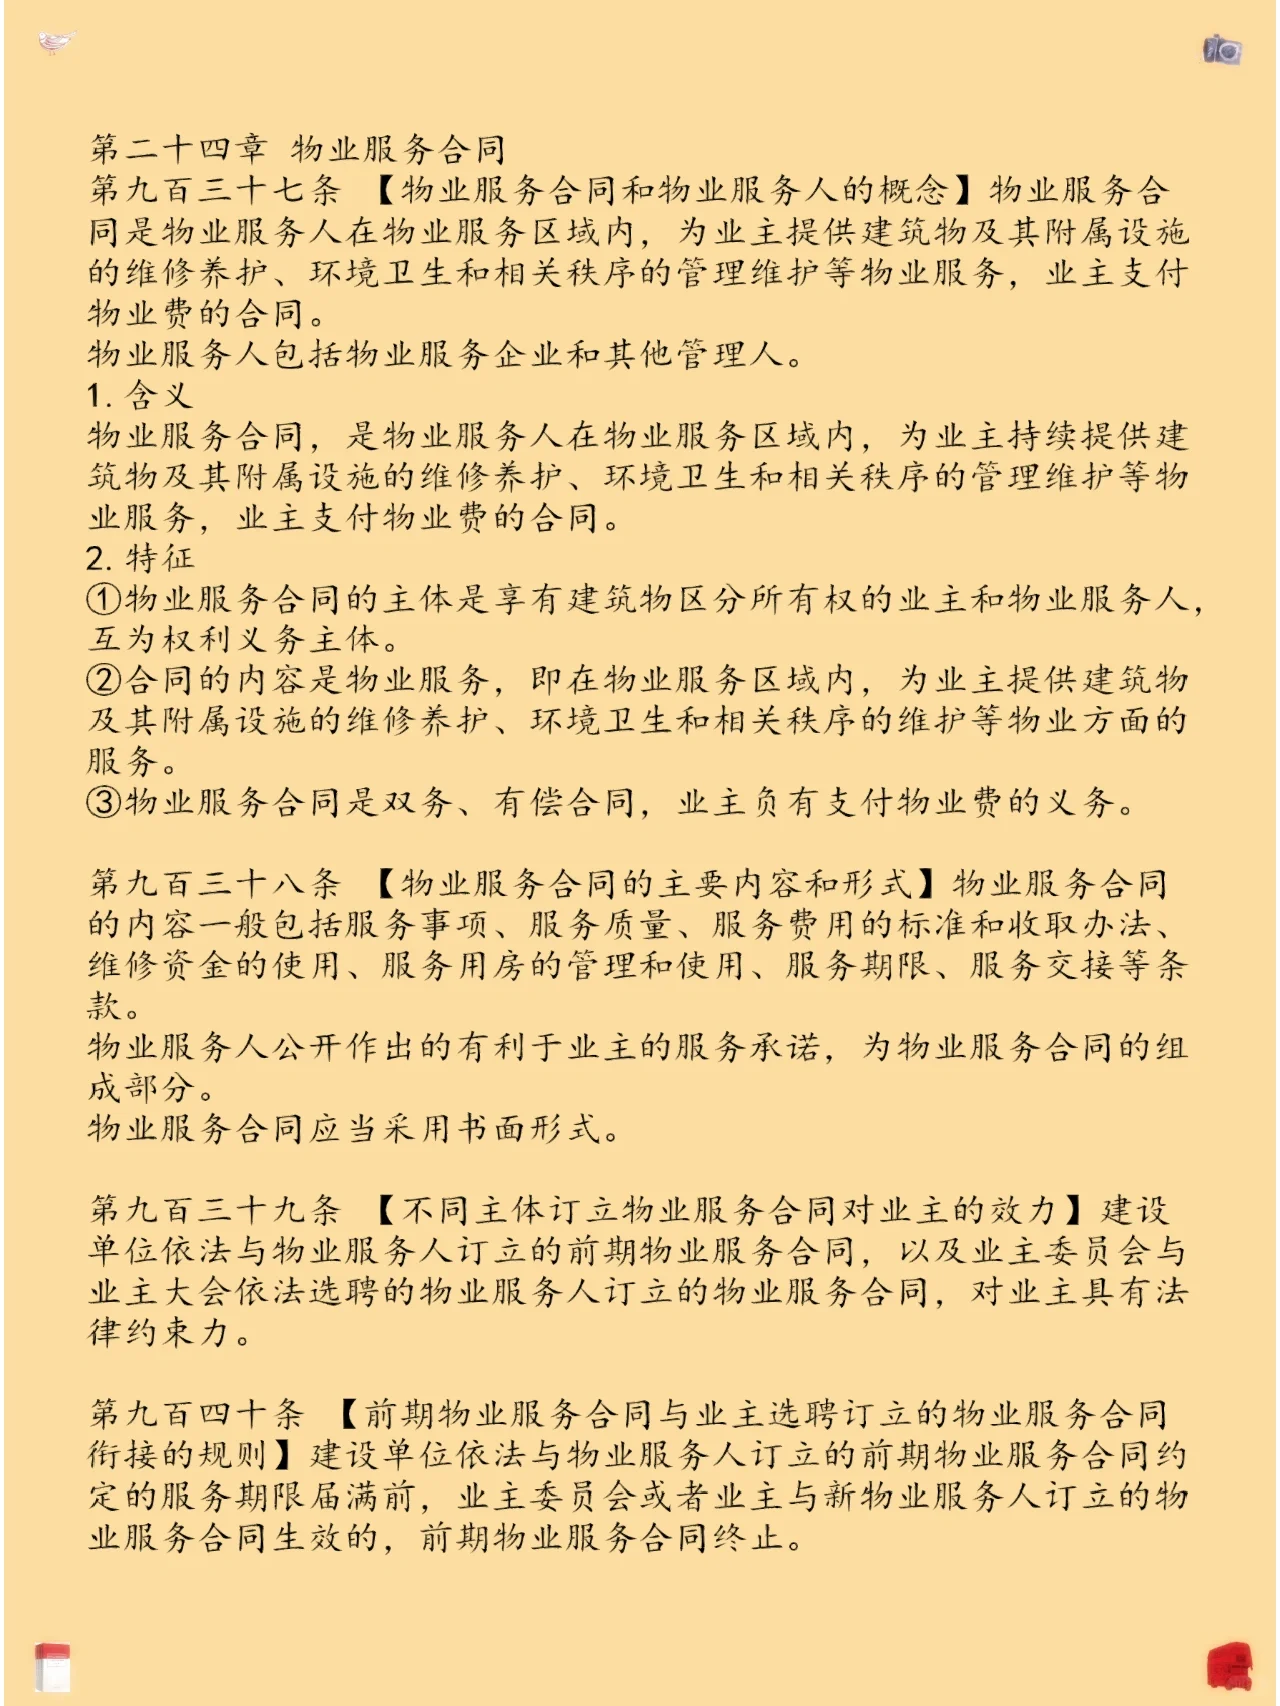 第二十四章 物业服务合同
第九百三十七条 【物业服务合同和物业服务人的概念】物业服务合
同是物业服务人在物业服务区域内，为业主提供建筑物及其附属设施
的维修养护、环境卫生和相关秩序的管理维护等物业服务，业主支付
物业费的合同。
物业服务人包括物业服务企业和其他管理人。
1. 含义
物业服务合同，是物业服务人在物业服务区域内，为业主持续提供建
筑物及其附属设施的维修养护、环境卫生和相关秩序的管理维护等物
业服务，业主支付物业费的合同。
2. 特征
①物业服务合同的主体是享有建筑物区分所有权的业主和物业服务人，
互为权利义务主体。
②合同的内容是物业服务，即在物业服务区域内，为业主提供建筑物
及其附属设施的维修养护、环境卫生和相关秩序的维护等物业方面的
服务。
③物业服务合同是双务、有偿合同，业主负有支付物业费的义务。
第九百三十八条 【物业服务合同的主要内容和形式】物业服务合同
的内容一般包括服务事项、服务质量、服务费用的标准和收取办法、
维修资金的使用、服务用房的管理和使用、服务期限、服务交接等条
款。
物业服务人公开作出的有利于业主的服务承诺，为物业服务合同的组
成部分。
物业服务合同应当采用书面形式。
第九百三十九条 【不同主体订立物业服务合同对业主的效力】建设
单位依法与物业服务人订立的前期物业服务合同，以及业主委员会与
业主大会依法选聘的物业服务人订立的物业服务合同，对业主具有法
律约束力。
第九百四十条 【前期物业服务合同与业主选聘订立的物业服务合同
衔接的规则】建设单位依法与物业服务人订立的前期物业服务合同约
定的服务期限届满前，业主委员会或者业主与新物业服务人订立的物
业服务合同生效的，前期物业服务合同终止。